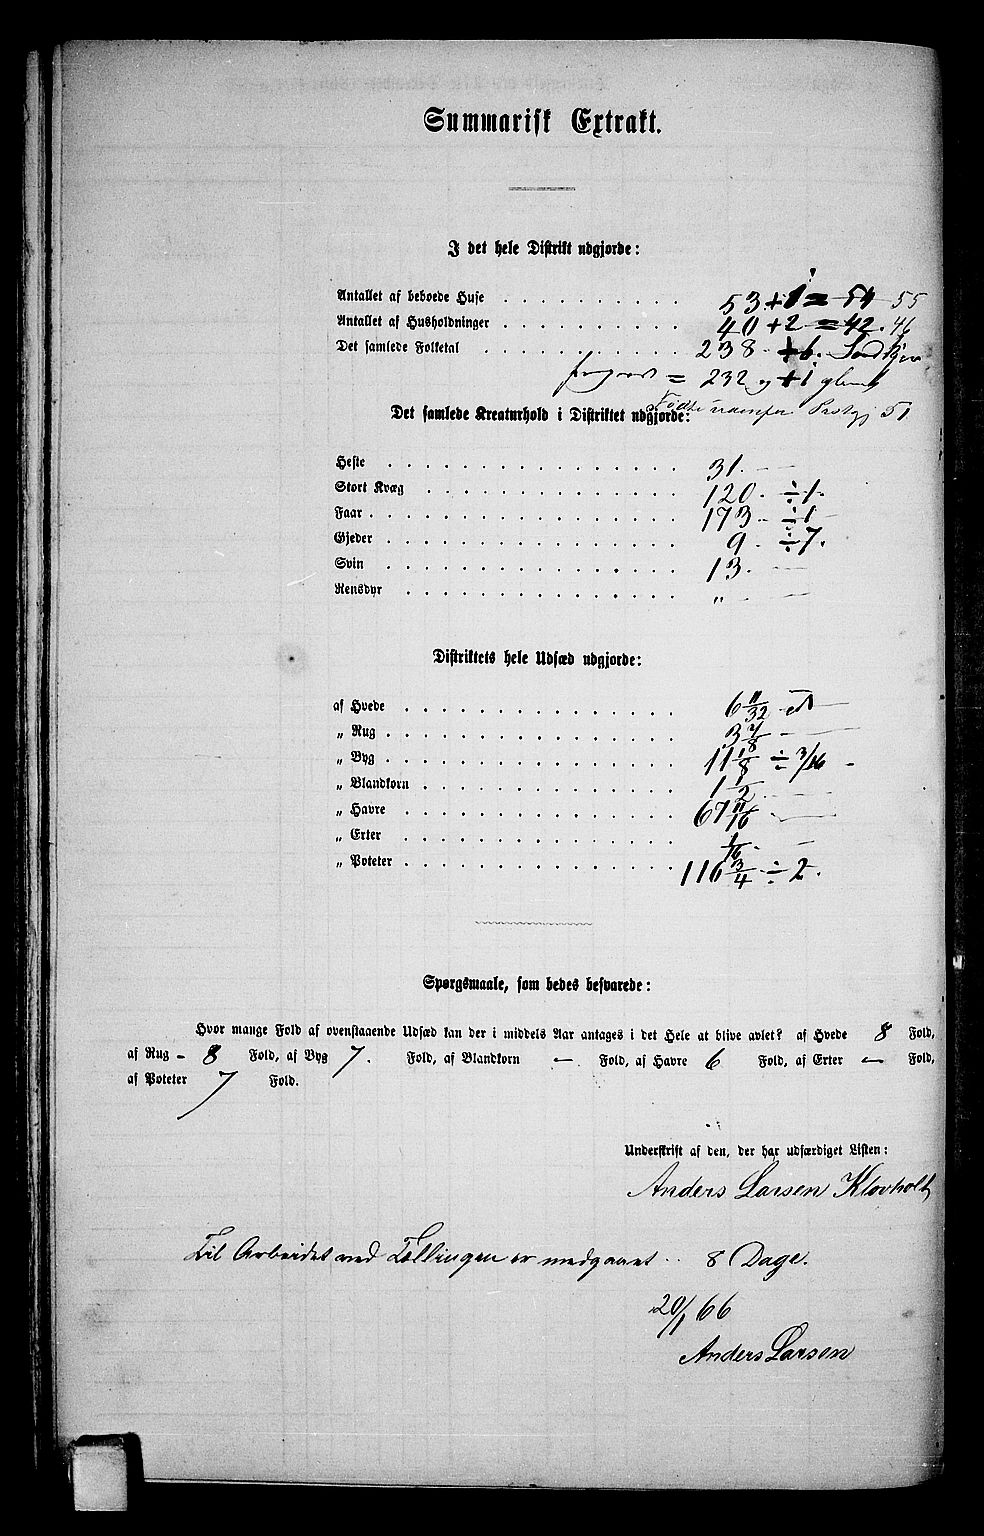 Summarisk Extrakt.
I det hele Distrikt udgjorde:
Antallet af beboede Huse . . . . . . . . . . 53 + 1 = 54 55
Antallet af Husholdninger . . . . . . . . . . 40 + 2 = 42. 46
Det samlede Folketal . . . . . . . . . . . 238 + 6.
= 232 og + 1
Født udenfor 51
Det samlede Kreaturhold i Distriktet udgjorde:
Heste . . . . . . . . . . . . . 31. —
Stort Kvæg . . . . . . . . . . . 120. ÷ 1.
Faar . . . . . . . . . . . . . . 173. ÷ 1 —
Gjeder . . . . . . . . . . . . . 9. ÷ 7.
Svin . . . . . . . . . . . . . 13. —
Rensdyr . . . . . . . . . . . . „ —
Distriktets hele Udsæd udgjorde:
af Hvede . . . . . . . . . . . . 6 11/32
„ Rug . . . . . . . . . . . . . 3 7/8 —
„ Byg . . . . . . . . . . . . . 11 1/8 ÷ 3/16 -
„ Blandkorn . . . . . . . . . . . 1 1/2 —
„ Havre . . . . . . . . . . . . 67 11/16 —
„ Erter . . . . . . . . . . . . 1/16 —
„ Poteter . . . . . . . . . . . . 116 3/4 ÷ 2.
Spørgsmaale, som bedes besvarede:
Hvor mange Fold af ovenstaaende Udsæd kan der i middels Aar antages i det Hele at blive avlet? af Hvede 8 Fold,
af Rug - 8 Fold, af Byg 7. Fold, af Blandkorn — Fold, af Havre 6 Fold, af Erter — Fold,
af Poteter 7 Fold.
Underskrift af den, der har udfærdiget Listen:
Anders Larsen Klovholt
Til Arbeidet ved Tællingen er medgaaet 8 Dage.
20/1 66
Anders Larsen